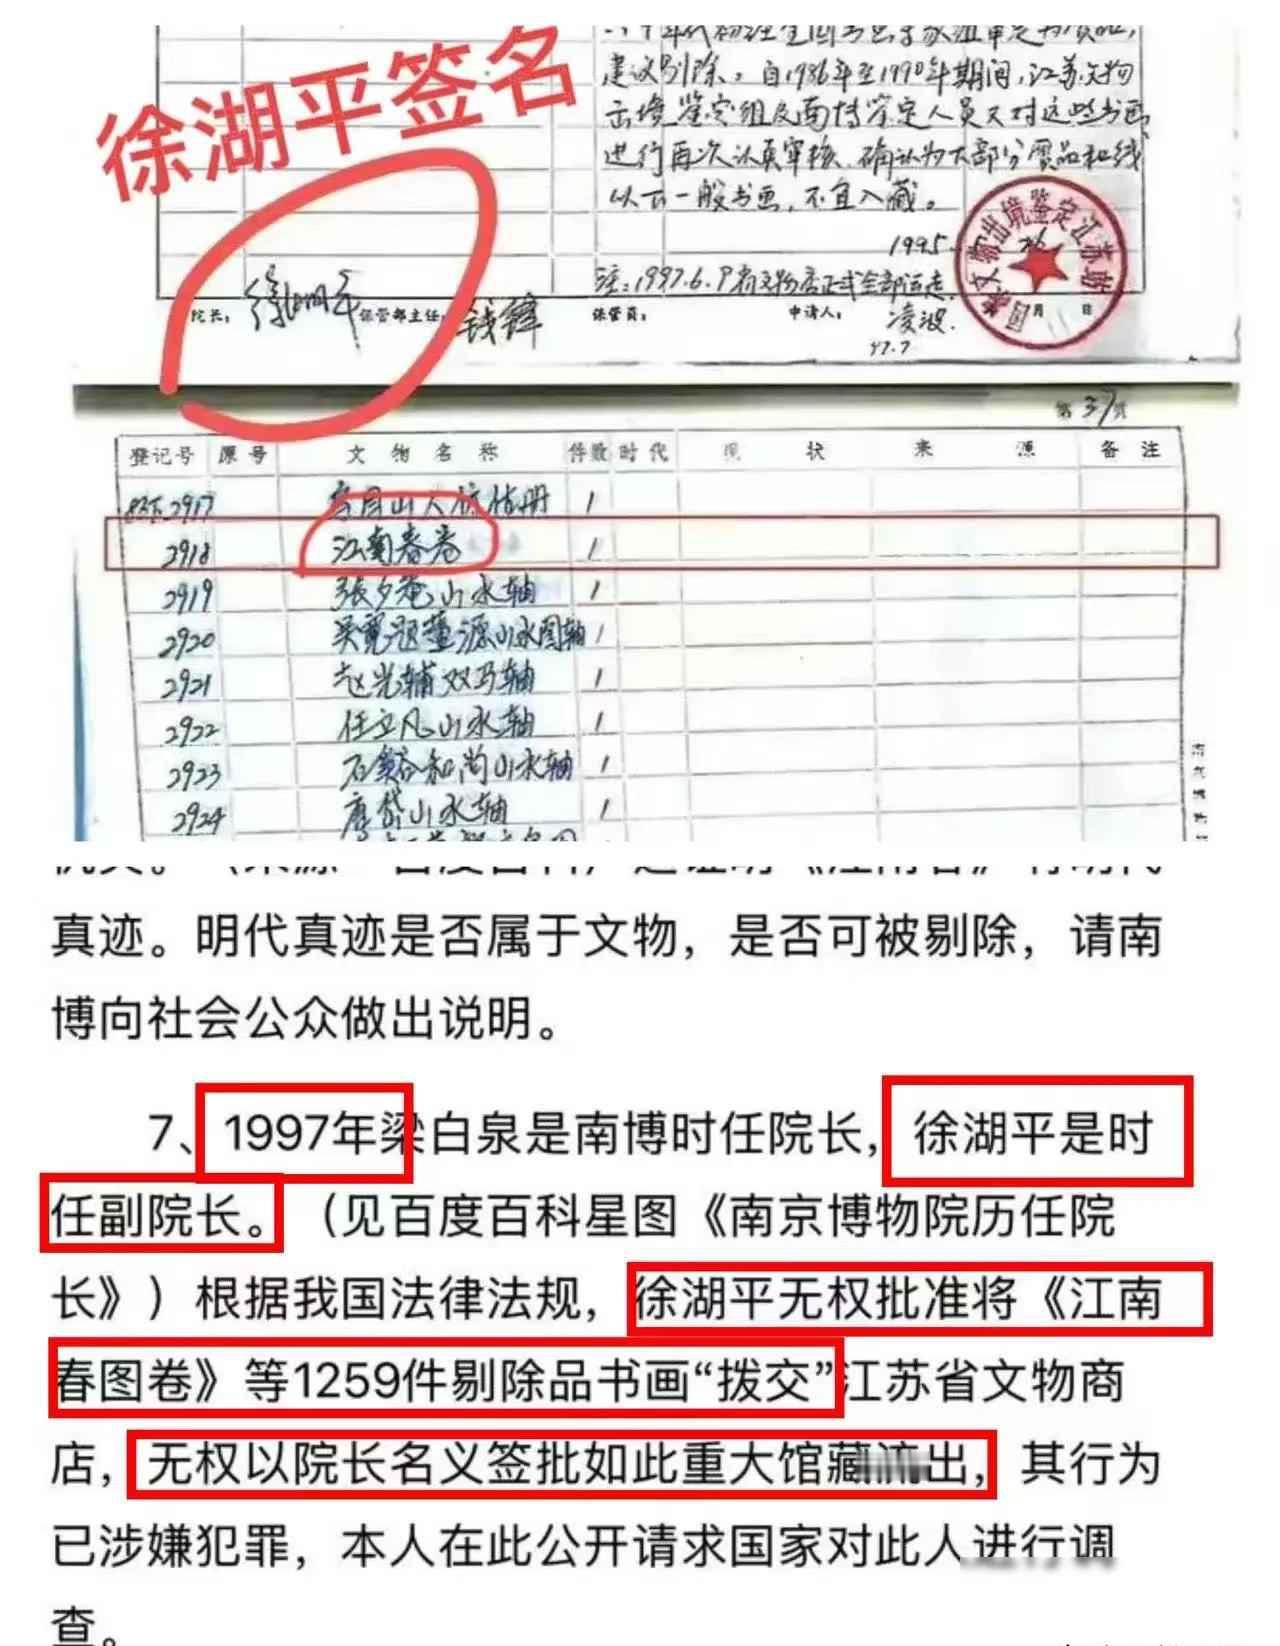 徐湖平签名
建议剔除。自1986年至1990年期间,江苏文物
出境鉴定组及南博鉴定人员又对这些书画
进行再次认真审核、确认为大部分赝品和线
以下一般书画,不宜入藏。
1995.
国家文物出境鉴定江苏站
月 日
注:1997.6.9
院长: 徐湖平 保管部主任: 钱锋 保管员: 申请人: 凌波.
97.7
第37页
登记号 原号 文物名称 件数 时代 现状 来源 备注
2917 1
2918 江南春卷 1
2919 張夕菴山水轴 1
2920 吴寛题董源山水图轴 1
2921 赵光辅双马轴 1
2922 任立凡山水轴 1
2923 石谿和尚山水轴 1
2924 唐岱山水轴 1
真迹。明代真迹是否属于文物,是否可被剔除,请南
博向社会公众做出说明。
7、1997年梁白泉是南博时任院长,徐湖平是时
任副院长。(见百度百科星图《南京博物院历任院
长》)根据我国法律法规,徐湖平无权批准将《江南
春图卷》等1259件剔除品书画“拨交”江苏省文物商
店,无权以院长名义签批如此重大馆藏流出,其行为
已涉嫌犯罪,本人在此公开请求国家对此人进行调
查。